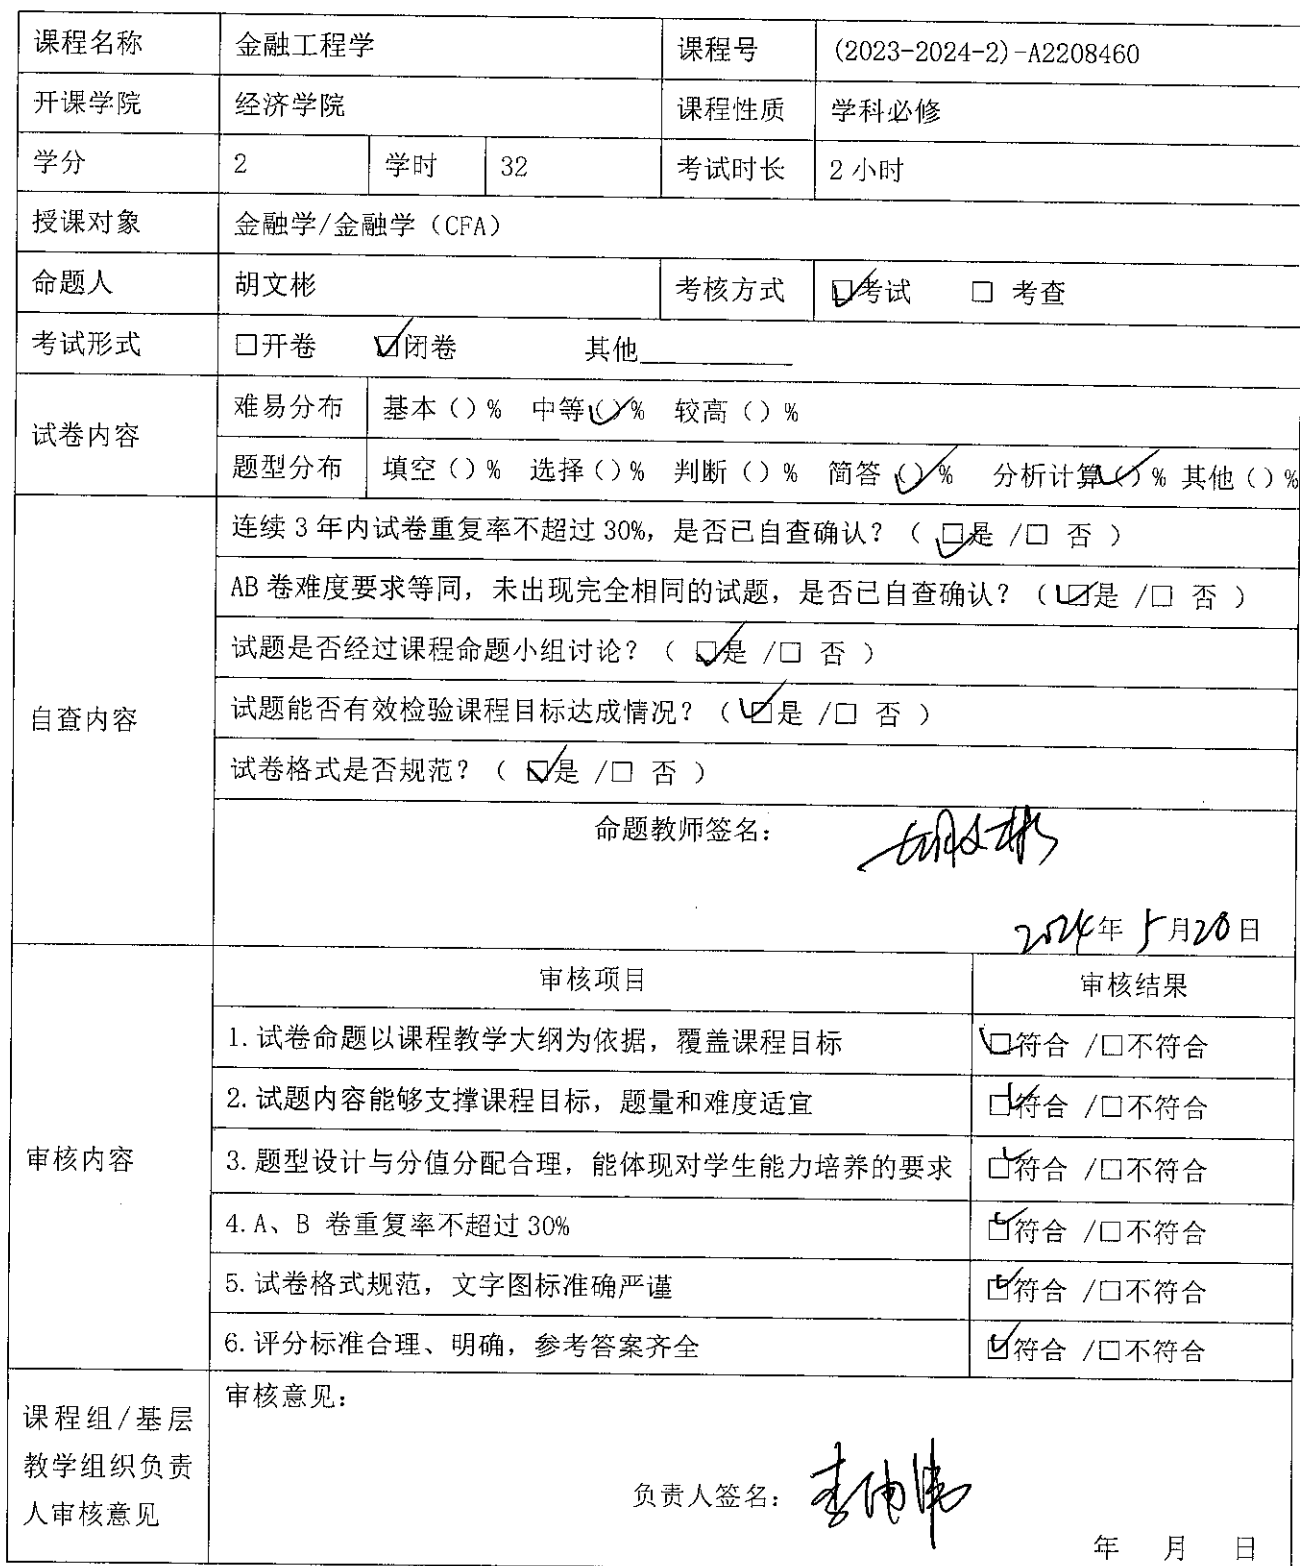 课程名称 金融工程学 课程号 (2023-2024-2)-A2208460
开课学院 经济学院 课程性质 学科必修
学分 2 学时 32 考试时长 2小时
授课对象 金融学/金融学（CFA）
命题人 胡文彬 考核方式 ☑考试 □ 考查
考试形式 □开卷 ☑闭卷 其他________
试卷内容
难易分布 基本（）% 中等（✓）% 较高（）%
题型分布 填空（）% 选择（）% 判断（）% 简答（✓）% 分析计算（✓）% 其他（）%
自查内容
连续3年内试卷重复率不超过30%，是否已自查确认？（ ☑是 /□ 否 ）
AB卷难度要求等同，未出现完全相同的试题，是否已自查确认？（ ☑是 /□ 否 ）
试题是否经过课程命题小组讨论？（ ☑是 /□ 否 ）
试题能否有效检验课程目标达成情况？（ ☑是 /□ 否 ）
试卷格式是否规范？（ ☑是 /□ 否 ）
命题教师签名： 胡文彬
2024年5月20日
审核内容
审核项目 审核结果
1.试卷命题以课程教学大纲为依据，覆盖课程目标 ☑符合 /□不符合
2.试题内容能够支撑课程目标，题量和难度适宜 ☑符合 /□不符合
3.题型设计与分值分配合理，能体现对学生能力培养的要求 ☑符合 /□不符合
4.A、B 卷重复率不超过30% ☑符合 /□不符合
5.试卷格式规范，文字图标准确严谨 ☑符合 /□不符合
6.评分标准合理、明确，参考答案齐全 ☑符合 /□不符合
课程组/基层
教学组织负责
人审核意见
审核意见：
负责人签名：
年 月 日